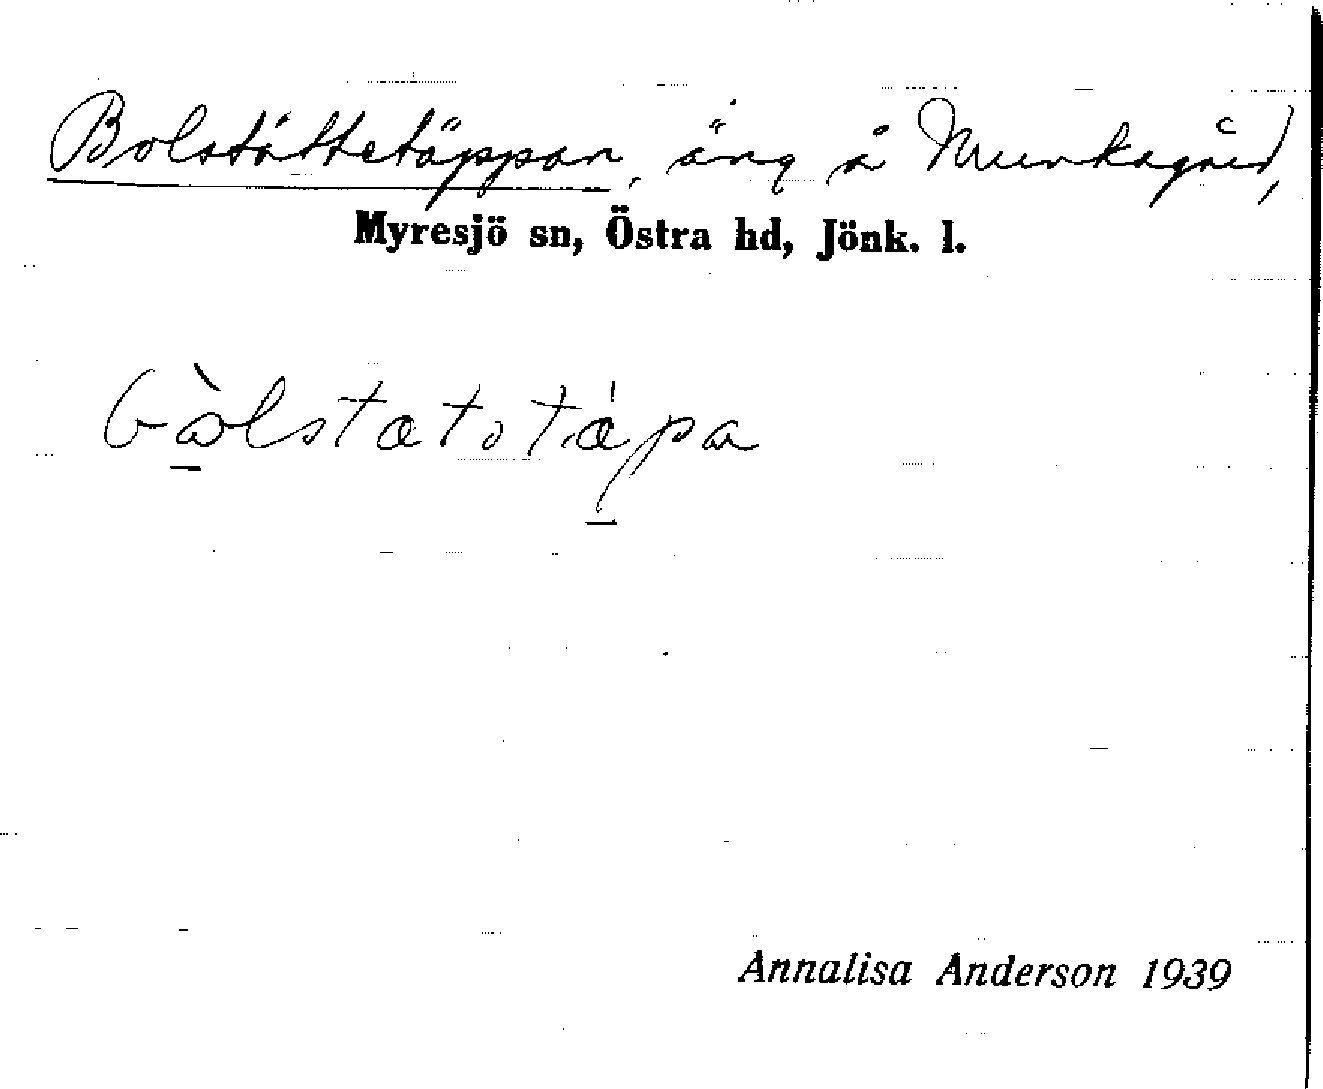 Bolstättetäppan, äng å Munkagård,
Myresjö sn, Östra hd, Jönk. l.
bòlstætotǽpa
Annalisa Anderson 1939